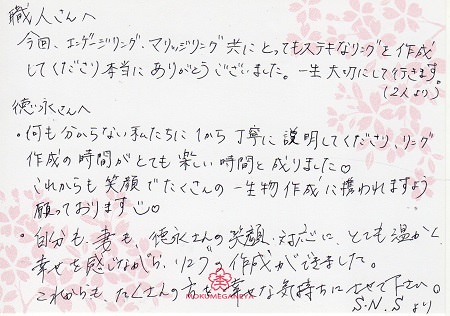 職人さんへ
今回、エンゲージリング、マリッジリング共にとってもステキなリングを作成
してくださり本当にありがとうございました。一生大切にして行きます。
(2人より)
徳永さんへ
・何も分からない私たちに1から丁寧に説明してくださり、リング
作成の時間がとても楽しい時間と成りました♡
これからも笑顔でたくさんの一生物作成に携われますよう
願っております
・自分も、妻も、徳永さんの笑顔・対応に、とても温かく
幸せを感じながら、リングの作成ができました。
これからも、たくさんの方を幸せな気持ちにさせて下さい。
S.N.Sより
MOKUMEGANEYA